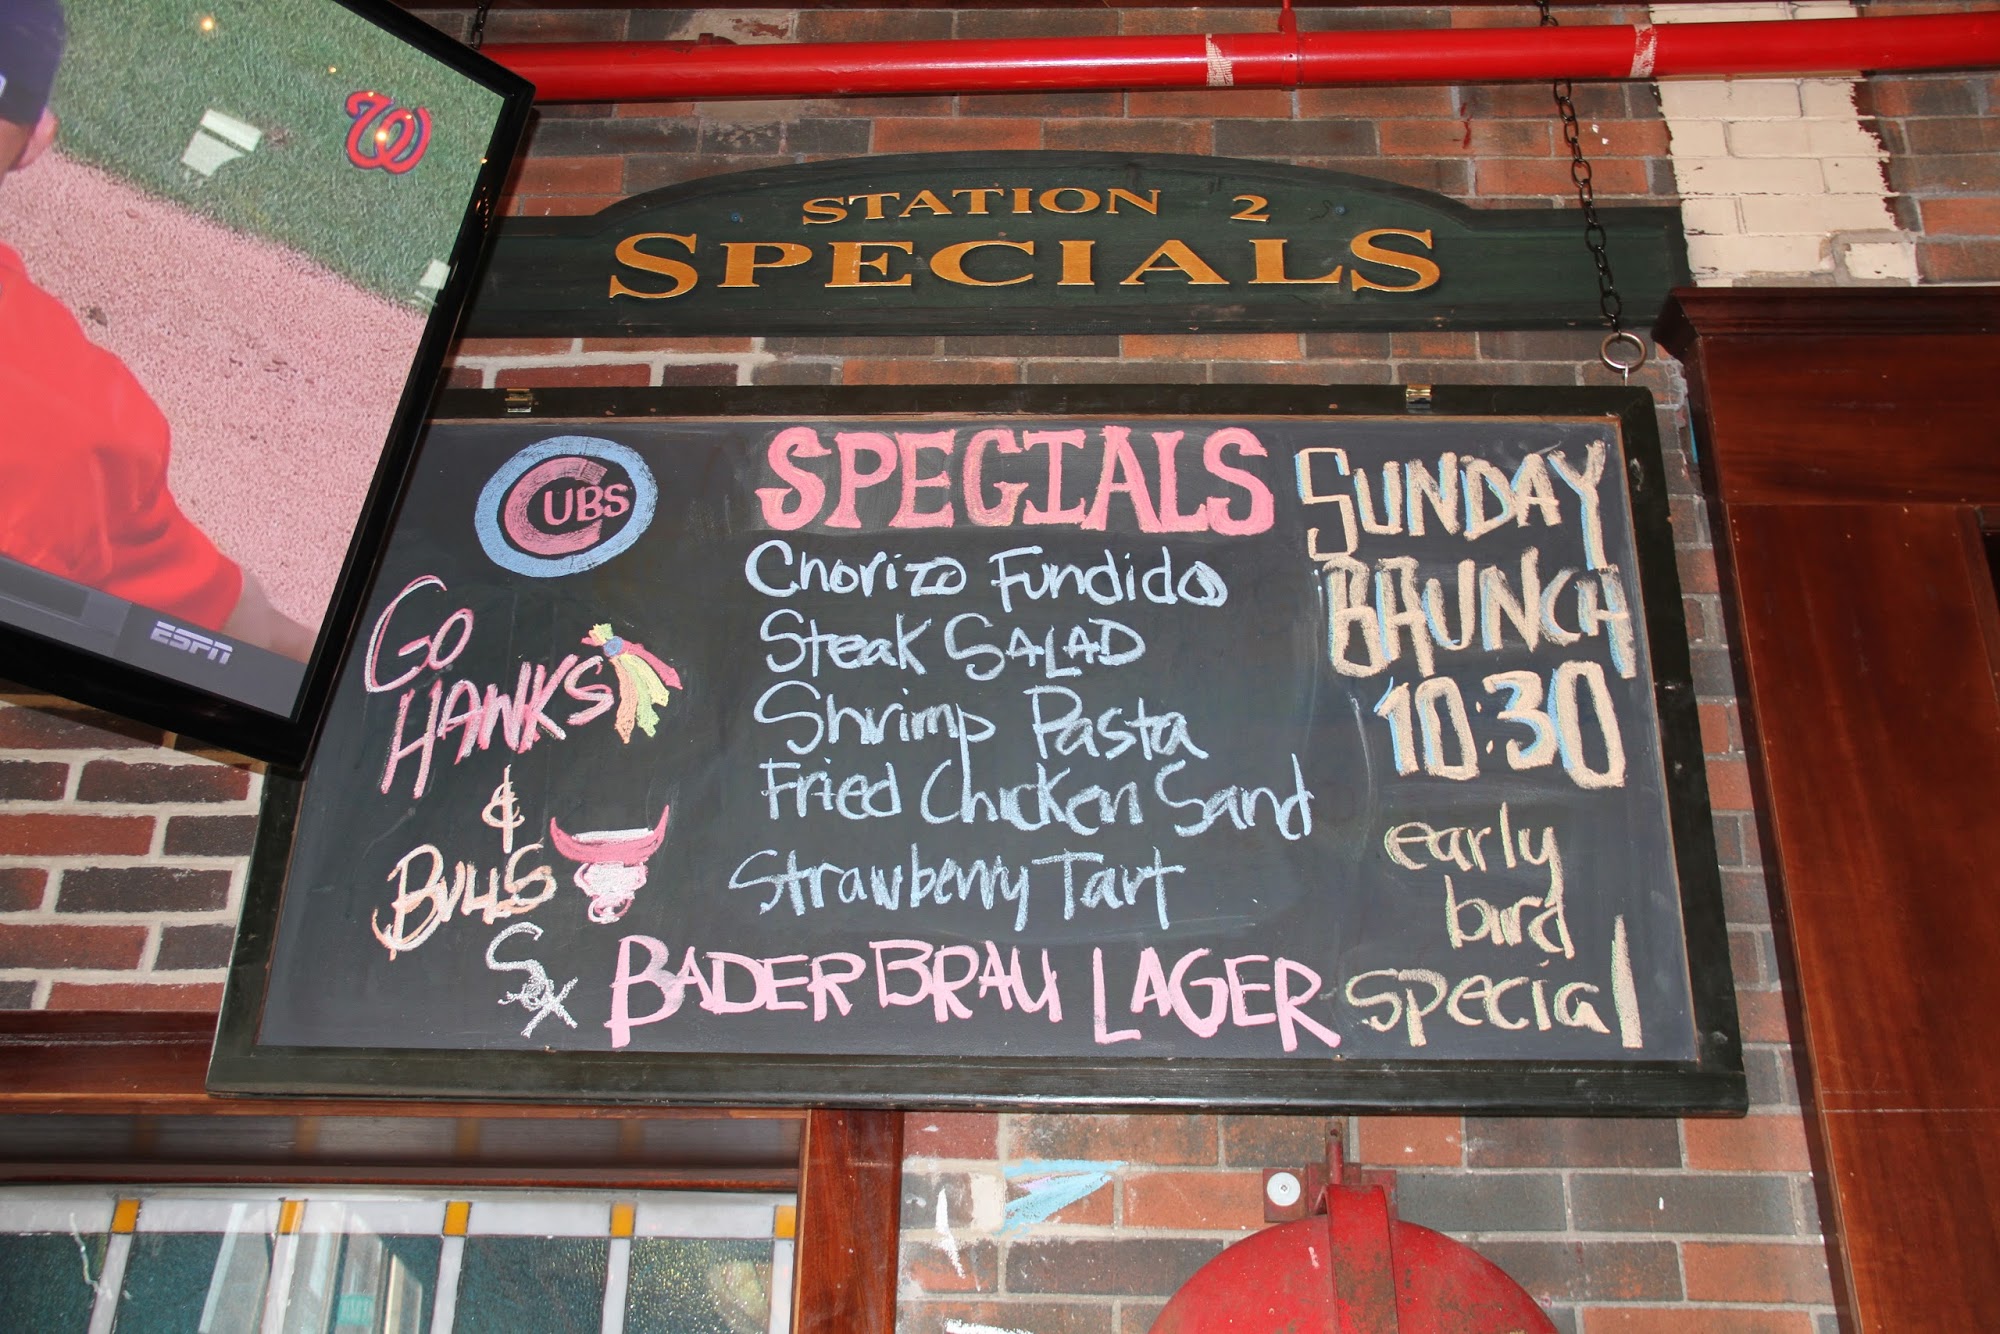 W
ESPN
STATION 2
SPECIALS
CUBS
GO
HAWKS
&
BULLS
Sox
SPECIALS
Chorizo Fundido
Steak SALAD
Shrimp Pasta
Fried Chicken Sand
Strawberry Tart
BADER BRAU LAGER
SUNDAY
BRUNCH
10:30
early
bird
special